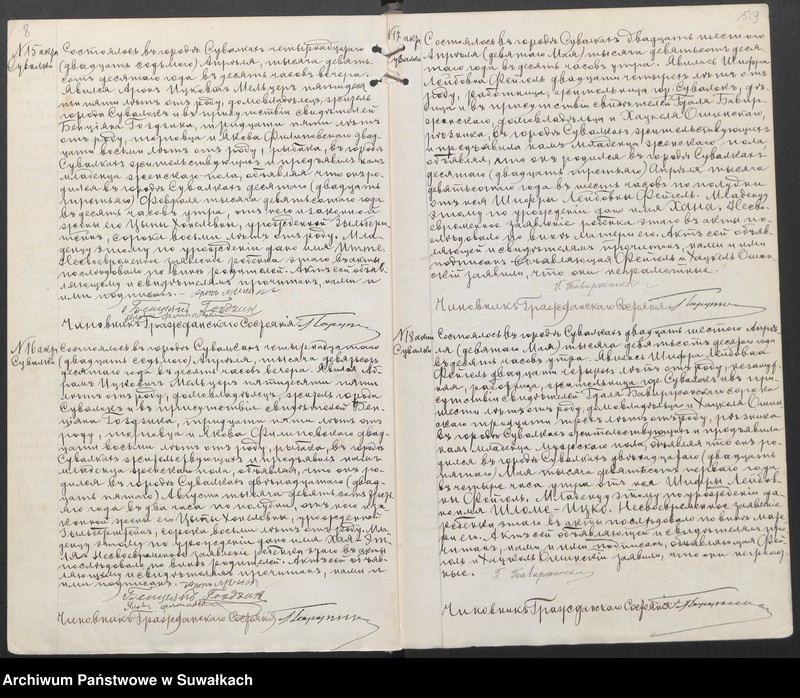 8
N 15 акр.
Сувалки
Состоялось въ городѣ Сувалкахъ четырнадцатаго
(двадцать седьмого) Апрѣля, тысяча девять-
сотъ десятаго года въ десять часовъ вечера.
Явился Аронъ Ицковичъ Мельцеръ пятидесяти
пяти лѣтъ отъ роду, домовладѣлецъ, житель
города Сувалокъ и въ присутствіи свидѣтелей
Бенціяна Гоздзика, тридцати пяти лѣтъ
отъ роду, торговца и Якова Филиповскаго двад-
цати восьми лѣтъ отъ роду, рыбака, въ городѣ
Сувалкахъ жительствующихъ и предъявилъ намъ
младенца женскаго пола, объявляя что онъ ро-
дился въ городѣ Сувалкахъ десятаго (двадцать
третьяго) Февраля тысяча девятьсотаго года
въ десять часовъ утра, отъ него и законной
жены его Цыпы Хонелевны, урожденной
сорока восьми лѣтъ отъ роду. Мла-
денцу этому по урожденіи дано имя Итте.
Несвоевременное заявленіе ребенка этаго въ акты
послѣдовало по винѣ родителей. Актъ сей объяв-
ляющему и свидѣтелямъ прочитанъ, нами и
ими подписанъ.
Чиновникъ Гражданскаго Состоянія
N 16 акр.
Сувалки
Состоялось въ городѣ Сувалкахъ четырнадцатаго
(двадцать седьмого) Апрѣля, тысяча девятьсотъ
десятаго года въ десять часовъ вечера. Явился
Ицковичъ Мельцеръ пятидесяти пяти
лѣтъ отъ роду, домовладѣлецъ, житель города
Сувалокъ и въ присутствіи свидѣтелей Бен-
ціяна Гоздзика, тридцати пяти лѣтъ отъ
роду, торговца и Якова Филиповскаго двад-
цати восьми лѣтъ отъ роду, рыбака, въ городѣ
Сувалкахъ жительствующихъ и предъявилъ намъ
младенца женскаго пола, объявляя, что онъ ро-
дился въ городѣ Сувалкахъ двѣнадцатаго (двад-
цать пятаго) Августа тысяча девятьсотъ
года въ два часа по полудни, отъ него и за-
конной жены его Цыпы Хонелевны, урожденной
сорока восьми лѣтъ отъ роду. Мла-
денцу этому по урожденіи дано имя Хая-
Несвоевременное заявленіе ребенка этаго въ акты
послѣдовало по винѣ родителей. Актъ сей объяв-
ляющему и свидѣтелямъ прочитанъ, нами и
ими подписанъ.
Чиновникъ Гражданскаго Состоянія
59
N 17 акр.
Сувалки
Состоялось въ городѣ Сувалкахъ двадцать шестого
Апрѣля (девятаго Мая) тысяча девятьсотъ деся-
таго года въ десять часовъ утра. Явилась Шифра
Лейбовна Фейгель двадцати четырехъ лѣтъ отъ
роду, работница, жительница гор. Сувалокъ, дѣ-
вица и въ присутствіи свидѣтелей Гдаля Бавир-
жанскаго, домовладѣльца и Хацкеля Ошинскаго,
рѣзника, въ городѣ Сувалкахъ жительствующихъ
и предъявила намъ младенца женскаго пола,
объявляя, что онъ родился въ городѣ Сувалкахъ
десятаго (двадцать третьяго) Апрѣля тысяча
девятьсотаго года въ шесть часовъ по полудни
отъ нея Шифры Лейбовны Фейгель. Младенцу
этому по урожденіи дано имя Хана. Несво-
евременное заявленіе ребенка этаго въ акты по-
слѣдовало по винѣ матери его. Актъ сей объяв-
ляющей и свидѣтелямъ прочитанъ, нами и ими
подписанъ. Объявляющая Фейгель и Хацкель Ошин-
скій заявили, что они неграмотные.
Чиновникъ Гражданскаго Состоянія
N 18 акт
Сувалки
Состоялось въ городѣ Сувалкахъ двадцать шестого Апрѣ-
ля (девятаго Мая) тысяча девятьсотъ десятаго года
въ десять часовъ утра. Явилась Шифра Лейбовна
Фейгель двадцати четырехъ лѣтъ отъ роду, незамуж-
няя, работница, жительница гор. Сувалокъ и въ при-
сутствіи свидѣтелей Гдаля Бавиржанскаго сорока
шести лѣтъ отъ роду, домовладѣльца и Хацкеля Ошин-
скаго тридцати трехъ лѣтъ отъ роду, рѣзника
въ городѣ Сувалкахъ жительствующихъ и предъявила
намъ младенца мужскаго пола, объявляя что онъ ро-
дился въ городѣ Сувалкахъ двѣнадцатаго (двадцать
пятаго) Мая тысяча девятьсотъ перваго года
въ четыре часа утра отъ нея Шифры Лейбов-
ны Фейгель. Младенцу этому по урожденіи да-
но имя Шломе-Ицко. Несвоевременное заявленіе
ребенка этаго въ акты послѣдовало по винѣ мате-
ри его. Актъ сей объявляющей и свидѣтелямъ про-
читанъ, нами и ими подписанъ, объявляющая Фей-
гель и Хацкель Ошинскій заявили, что они неграмот-
ные.
Чиновникъ Гражданскаго Состоянія
Archiwum Państwowe w Suwałkach